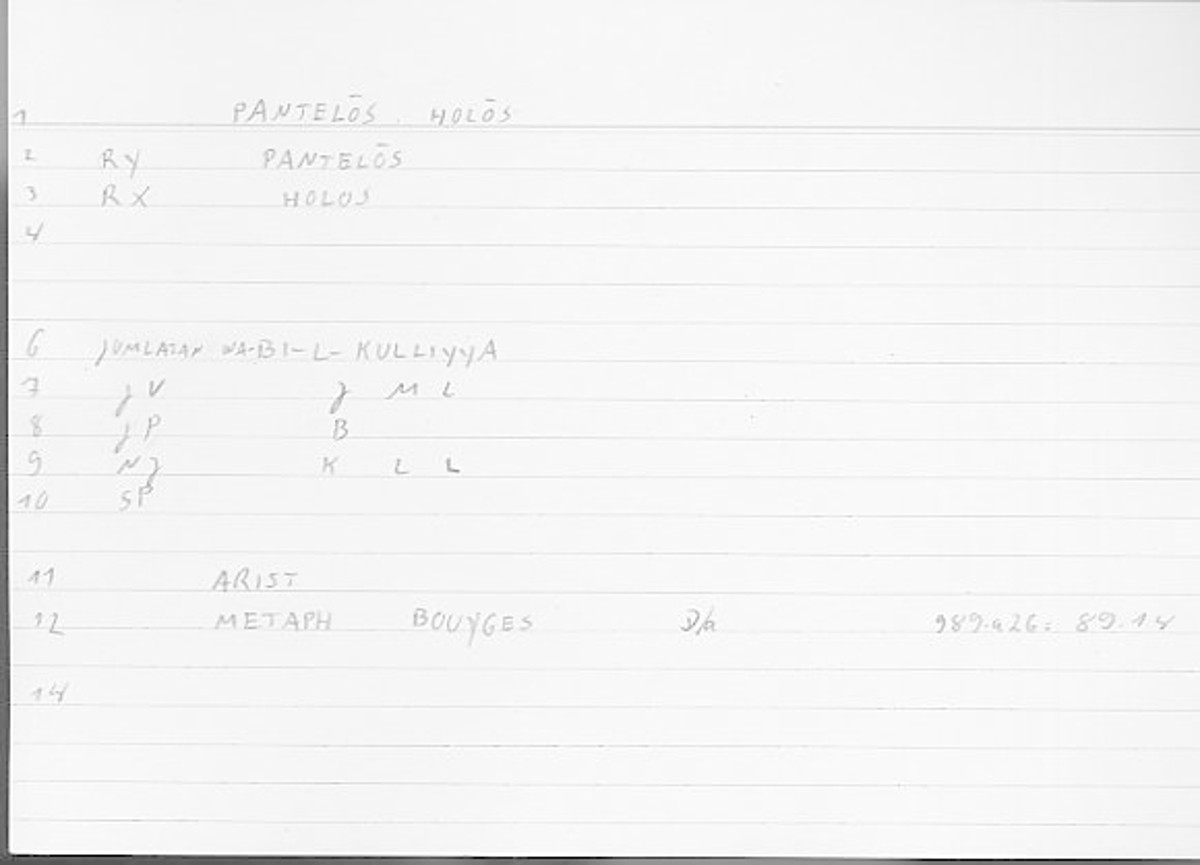 1 PANTELŌS . HOLŌS
2 RY PANTELŌS
3 RX HOLOS
4
6 JUMLATAN WA-BI-L-KULLIYYA
7 JV J M L
8 JP B
9 NJ K L L
10 SP
11 ARIST
12 METAPH BOUYGES 989.a26: 89.14
14